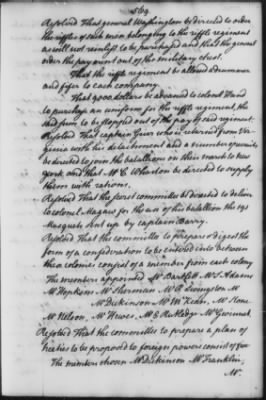 569
Resolved That general Washington be directed to order
the rifles of such men belonging to the rifle regiment
as will not reinlist to be purchased and that the general
order the payment out of the military chest.
That the rifle regiment be allowed a drummer
and fifer to each company.
That 9000 dollars be advanced to colonel Hand
to purchase an uniform for the rifle regiment, the
said sum to be stopped out of the pay of said regiment.
Resolved That captain Grier who is returned from Vir
ginia with his detachment and a number of recruits
be directed to join the batallions on their march to new
york, and that Mr C Wharton be directed to supply
them with rations.
Resolved That the secret committee be directed to deliver
to colonel Magaw for the use of his batallion the 191
Musquets sent up by captain Barry.
Resolved That the committee to prepare & digest the
form of a confederation to be entered into between
these colonies consist of a member from each colony
The members appointed Mr Bartlett Mr S Adams
Mr Hopkins Mr Sherman Mr R Livingston Mr
Mr Dickinson Mr McKean, Mr Stone
Mr Nelson, Mr Hewes, Mr E Rutledge Mr Gwinnet.
Resolved That the committee to prepare a plan of
treaties to be proposed to foreign powers consist of five
The members chosen Mr Dickinson Mr Franklin,
Mr